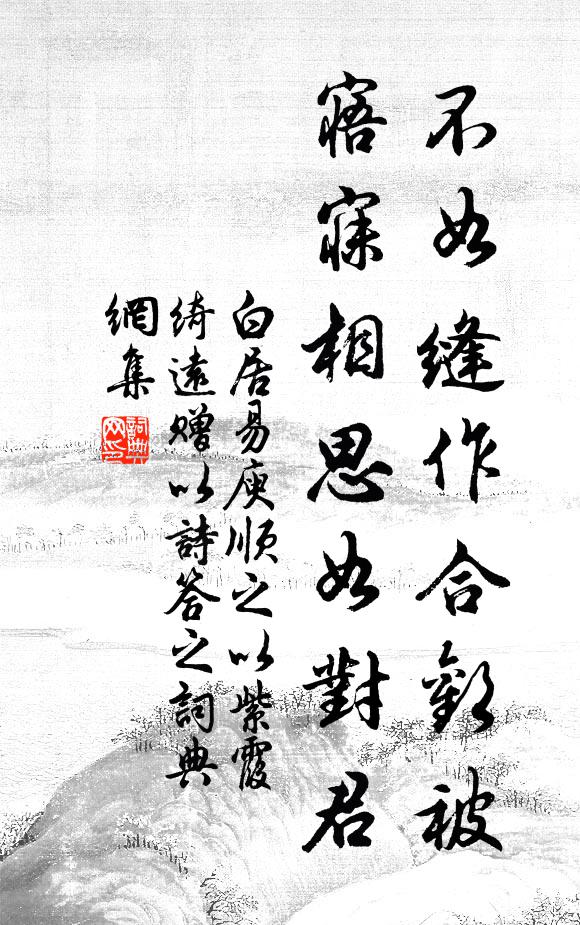 不如縫作合歡被
寤寐相思如對君
白居易庾順之以紫霞
綺遠贈以詩答之詞典
網集
詞典
网印